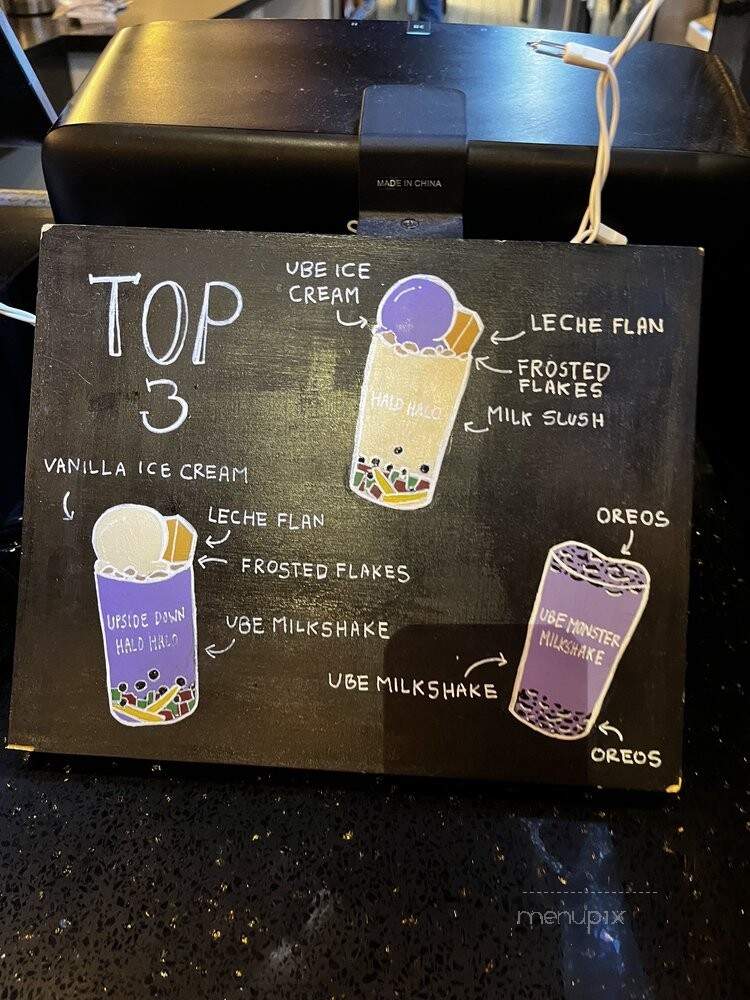 MADE IN CHINA
TOP
3
UBE ICE
CREAM
LECHE FLAN
FROSTED
FLAKES
HALO HALO
MILK SLUSH
VANILLA ICE CREAM
LECHE FLAN
FROSTED FLAKES
UPSIDE DOWN
HALO HALO
UBE MILKSHAKE
OREOS
UBE MONSTER
MILKSHAKE
UBE MILKSHAKE
OREOS
menupix